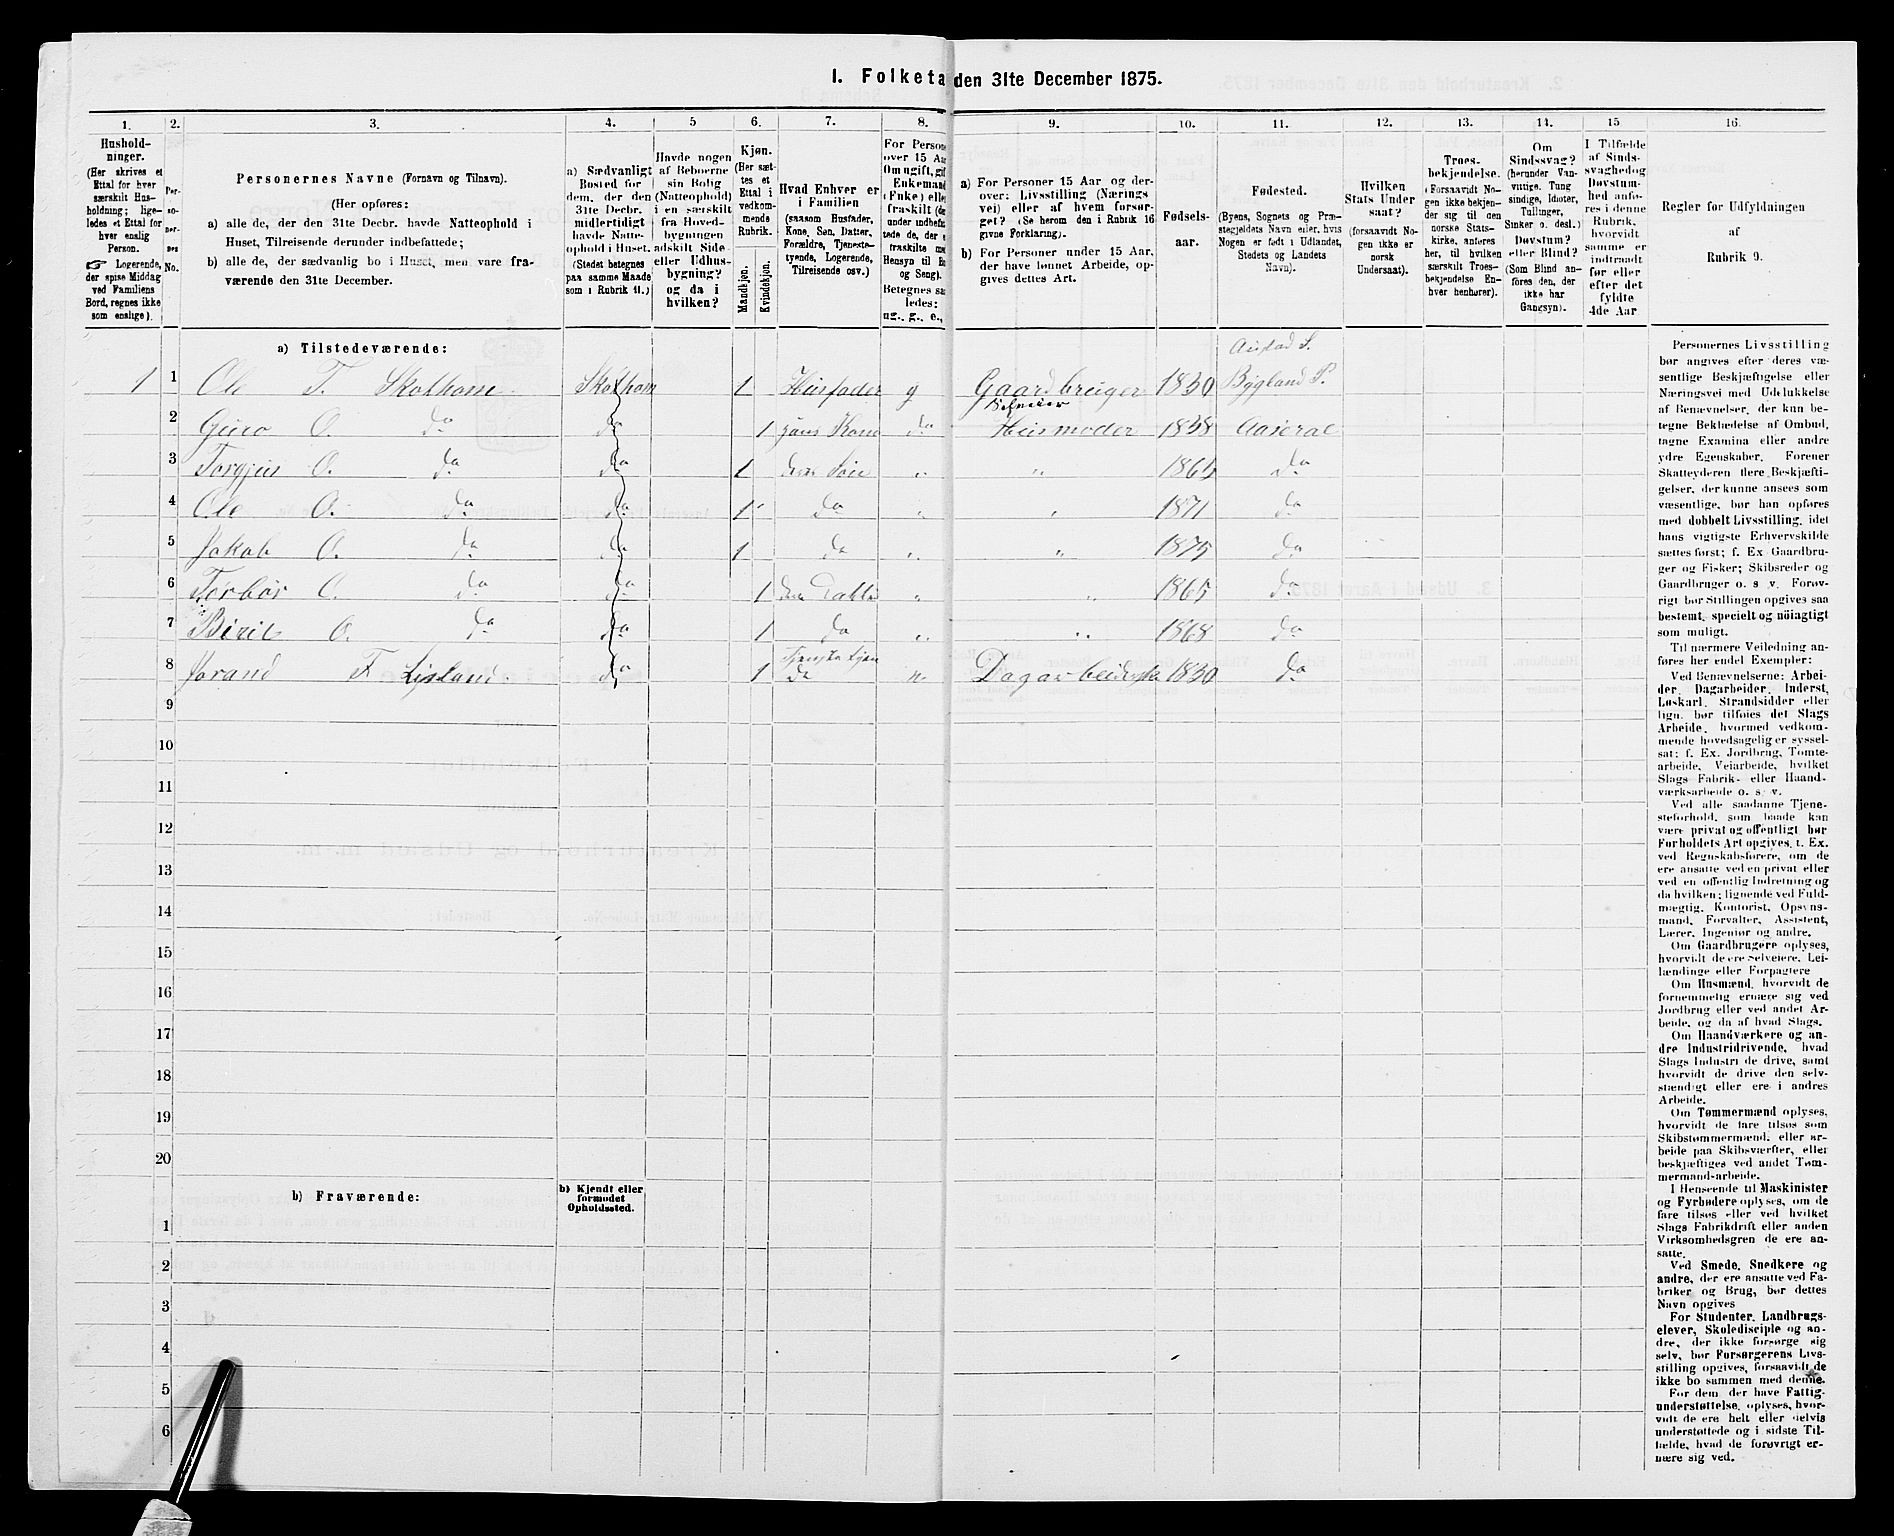 I. Folketa den 31te December 1875.
1. 2. 3. 4. 5 6. 7. 8. 9. 10. 11. 12. 13. 14. 15 16.
Hushold-
ninger.
(Her skrives et
Ettal for hver
særskilt Hus-
holdning; lige-
ledes et Ettal for
hver enslig
Person.
☞ Logerende,
der spise Middag
ved Familiens
Bord, regnes ikke
som enslige).
Per-
so-
ner-
nes
No.
Personernes Navne (Fornavn og Tilnavn).
(Her opføres:
a) alle de, der den 31te Decbr. havde Natteophold i
Huset, Tilreisende derunder indbefattede;
b) alle de, der sædvanlig bo i Huset, men vare fra-
værende den 31te December.
a) Sædvanligt
Bosted for
dem, der den
31te Decbr.
midlertidigt
havde Natte-
ophold i Huset.
(Stedet betegnes
paa samme Maade
som i Rubrik 11.)
Havde nogen
af Beboerne
sin Bolig
(Natteophold)
i en særskilt
fra Hoved-
bygningen
adskilt Side-
eller Udhus-
bygning?
og da i
hvilken?
Kjøn.
(Her sæt-
tes et
Ettal i
vedkom-
mende
Rubrik.
Mandkjøn.
Kvindekjøn.
Hvad Enhver er
i Familien
(saasom Husfader,
Kone, Søn, Datter,
Forældre, Tjeneste-
tyende, Logerende,
Tilreisende osv.)
For Persone
over 15 Aar
Om ugift, gif
Enkemand
(Enke) elle
fraskilt (de
under indbefat
tede de, der e
fraskilte me
Hensyn til Bo
og Seng).
Betegnes sa
ledes:
ug., g., e.,
a) For Personer 15 Aar og der-
over: Livsstilling (Nærings-
vei) eller af hvem forsør-
get? (Se herom den i Rubrik 16
givne Forklaring).
b) For Personer under 15 Aar,
der have lønnet Arbeide, op-
gives dettes Art.
Fødsels-
aar.
Fødested.
(Byens, Sognets og Præ-
stegjeldets Navn eller, hvis
Nogen er født i Udlandet,
Stedets og Landets
Navn).
Hvilken
Stats Under
saat?
(forsaavidt No-
gen ikke er
norsk
Undersaat).
Troes-
bekjendelse.
(Forsaavidt No-
gen ikke bekjen-
der sig til den
norske Stats-
kirke, anføres
her, til hvilken
særskilt Troes-
bekjendelse En-
hver henhører).
Om
Sindssvag?
(herunder Van-
vittige, Tung
sindige, Idioter,
Tullinger,
Sinker o. desl.)
Døvstum?
eller Blind?
(Som Blind an-
føres den, der
ikke har
Gangsyn).
I Tilfælde
af Sinds-
svaghed og
Døvstum-
hed anfø-
res i denne
Rubrik,
hvorvidt
samme er
indtraadt
før eller
efter det
fyldte
4de Aar
Regler for Udfyldningen
af
Rubrik 9.
a) Tilstedeværende:
Austad S.
1 1 Ole T. Skolhom Skolhom 1 Husfader g Gaardbruger 1830 Bygland P.
Selveier
2 Guro O. do do 1 hans Kone do Husmoder 1838 Aaseral
3 Torgjus O. do do 1 deres Søn " " do
4 Ole O. do do 1 do " " 1871 do
5 Jakob O. do do 1 do " " 1875 do
6 Torbor O. do do 1 " " 1865 do
7 Birit O. do do 1 do " " 1868 do
8 Jorand do 1 1830 do
9
10
11
12
13
14
15
16
17
18
19
20
b) Fraværende:
b) Kjendt eller
formodet
Opholdssted.
1
2
3
4
5
6
Personernes Livsstilling
bør angives efter deres væ-
sentlige Beskjæftigelse eller
Næringsvei med Udelukkelse
af Benævnelser, der kun be-
tegne Beklædelse af Ombud,
tagne Examina eller andre
ydre Egenskaber. Forener
Skatteyderen flere Beskjæfti-
gelser, der kunne ansees som
væsentlige, bør han opføres
med dobbelt Livsstilling, idet
hans vigtigste Erhvervskilde
sættes først; f. Ex Gaardbru-
ger og Fisker; Skibsreder og
Gaardbruger o. s. v. Forøv-
rigt bør Stillingen opgives saa
bestemt, specielt og nöiagtigt
som muligt.
Til nærmere Veiledning an-
føres her endel Exempler:
Ved Benævnelserne: Arbei-
der, Dagarbeider, Inderst,
Løskarl, Strandsidder eller
lign. bør tilføies det Slags
Arbeide, hvormed vedkom-
mende hovedsagelig er syssel-
sat; f. Ex. Jordbrug, Tomte-
arbeide, Veiarbeide, hvilket
Slags Fabrik- eller Haand-
værksarbeide o. s. v.
Ved alle saadanne Tjene-
steforhold, som baade kan
være privat og offentligt bør
Forholdets Art opgives, t. Ex.
ved Regnskabsførere, om de
ere ansatte ved en privat eller
ved en offentlig Indretning og
da hvilken; lignende ved Fuld-
mægtig, Kontorist, Opsyns-
mand, Forvalter, Assistent,
Lærer, Ingeniør og andre.
Om Gaardbrugere oplyses,
hvorvidt de ere Selveiere, Lei-
lændinge eller Forpagtere
Om Husmænd, hvorvidt de
fornemmelig ernære sig ved
Jordbrug eller ved andet Ar-
beide, og da af hvad Slags.
Om Haandværkere og an-
dre Industridrivende, hvad
Slags Industri de drive, samt
hvorvidt de drive den selv-
stændigt eller ere i andres
Arbeide.
Om Tømmermænd oplyses,
hvorvidt de fare tilsøs som
Skibstømmermænd, eller ar-
beide paa Skibsværfter, eller
beskjæftiges ved andet Tøm-
mermand-arbeide.
I Henseende til Maskinister
og Fyrbødere oplyses, om de
fare tilsøs eller ved hvilket
Slags Fabrikdrift eller anden
Virksomhedsgren de ere an-
satte.
Ved Smede, Snedkere og
andre, der ere ansatte ved Fa-
briker og Brug, bør dettes
Navn opgives
For Studenter, Landbrugs-
elever, Skoledisciple og an-
dre, der ikke forsørge sig
selv, bør Forsørgerens Livs-
stilling opgives, forsaavidt de
ikke bo sammen med denne.
For dem, der have Fattig-
understøttelse, oplyses, hvor-
vidt de ere helt eller delvis
understøttede og i sidste Til-
fælde, hvad de forøvrigt er-
nære sig ved.